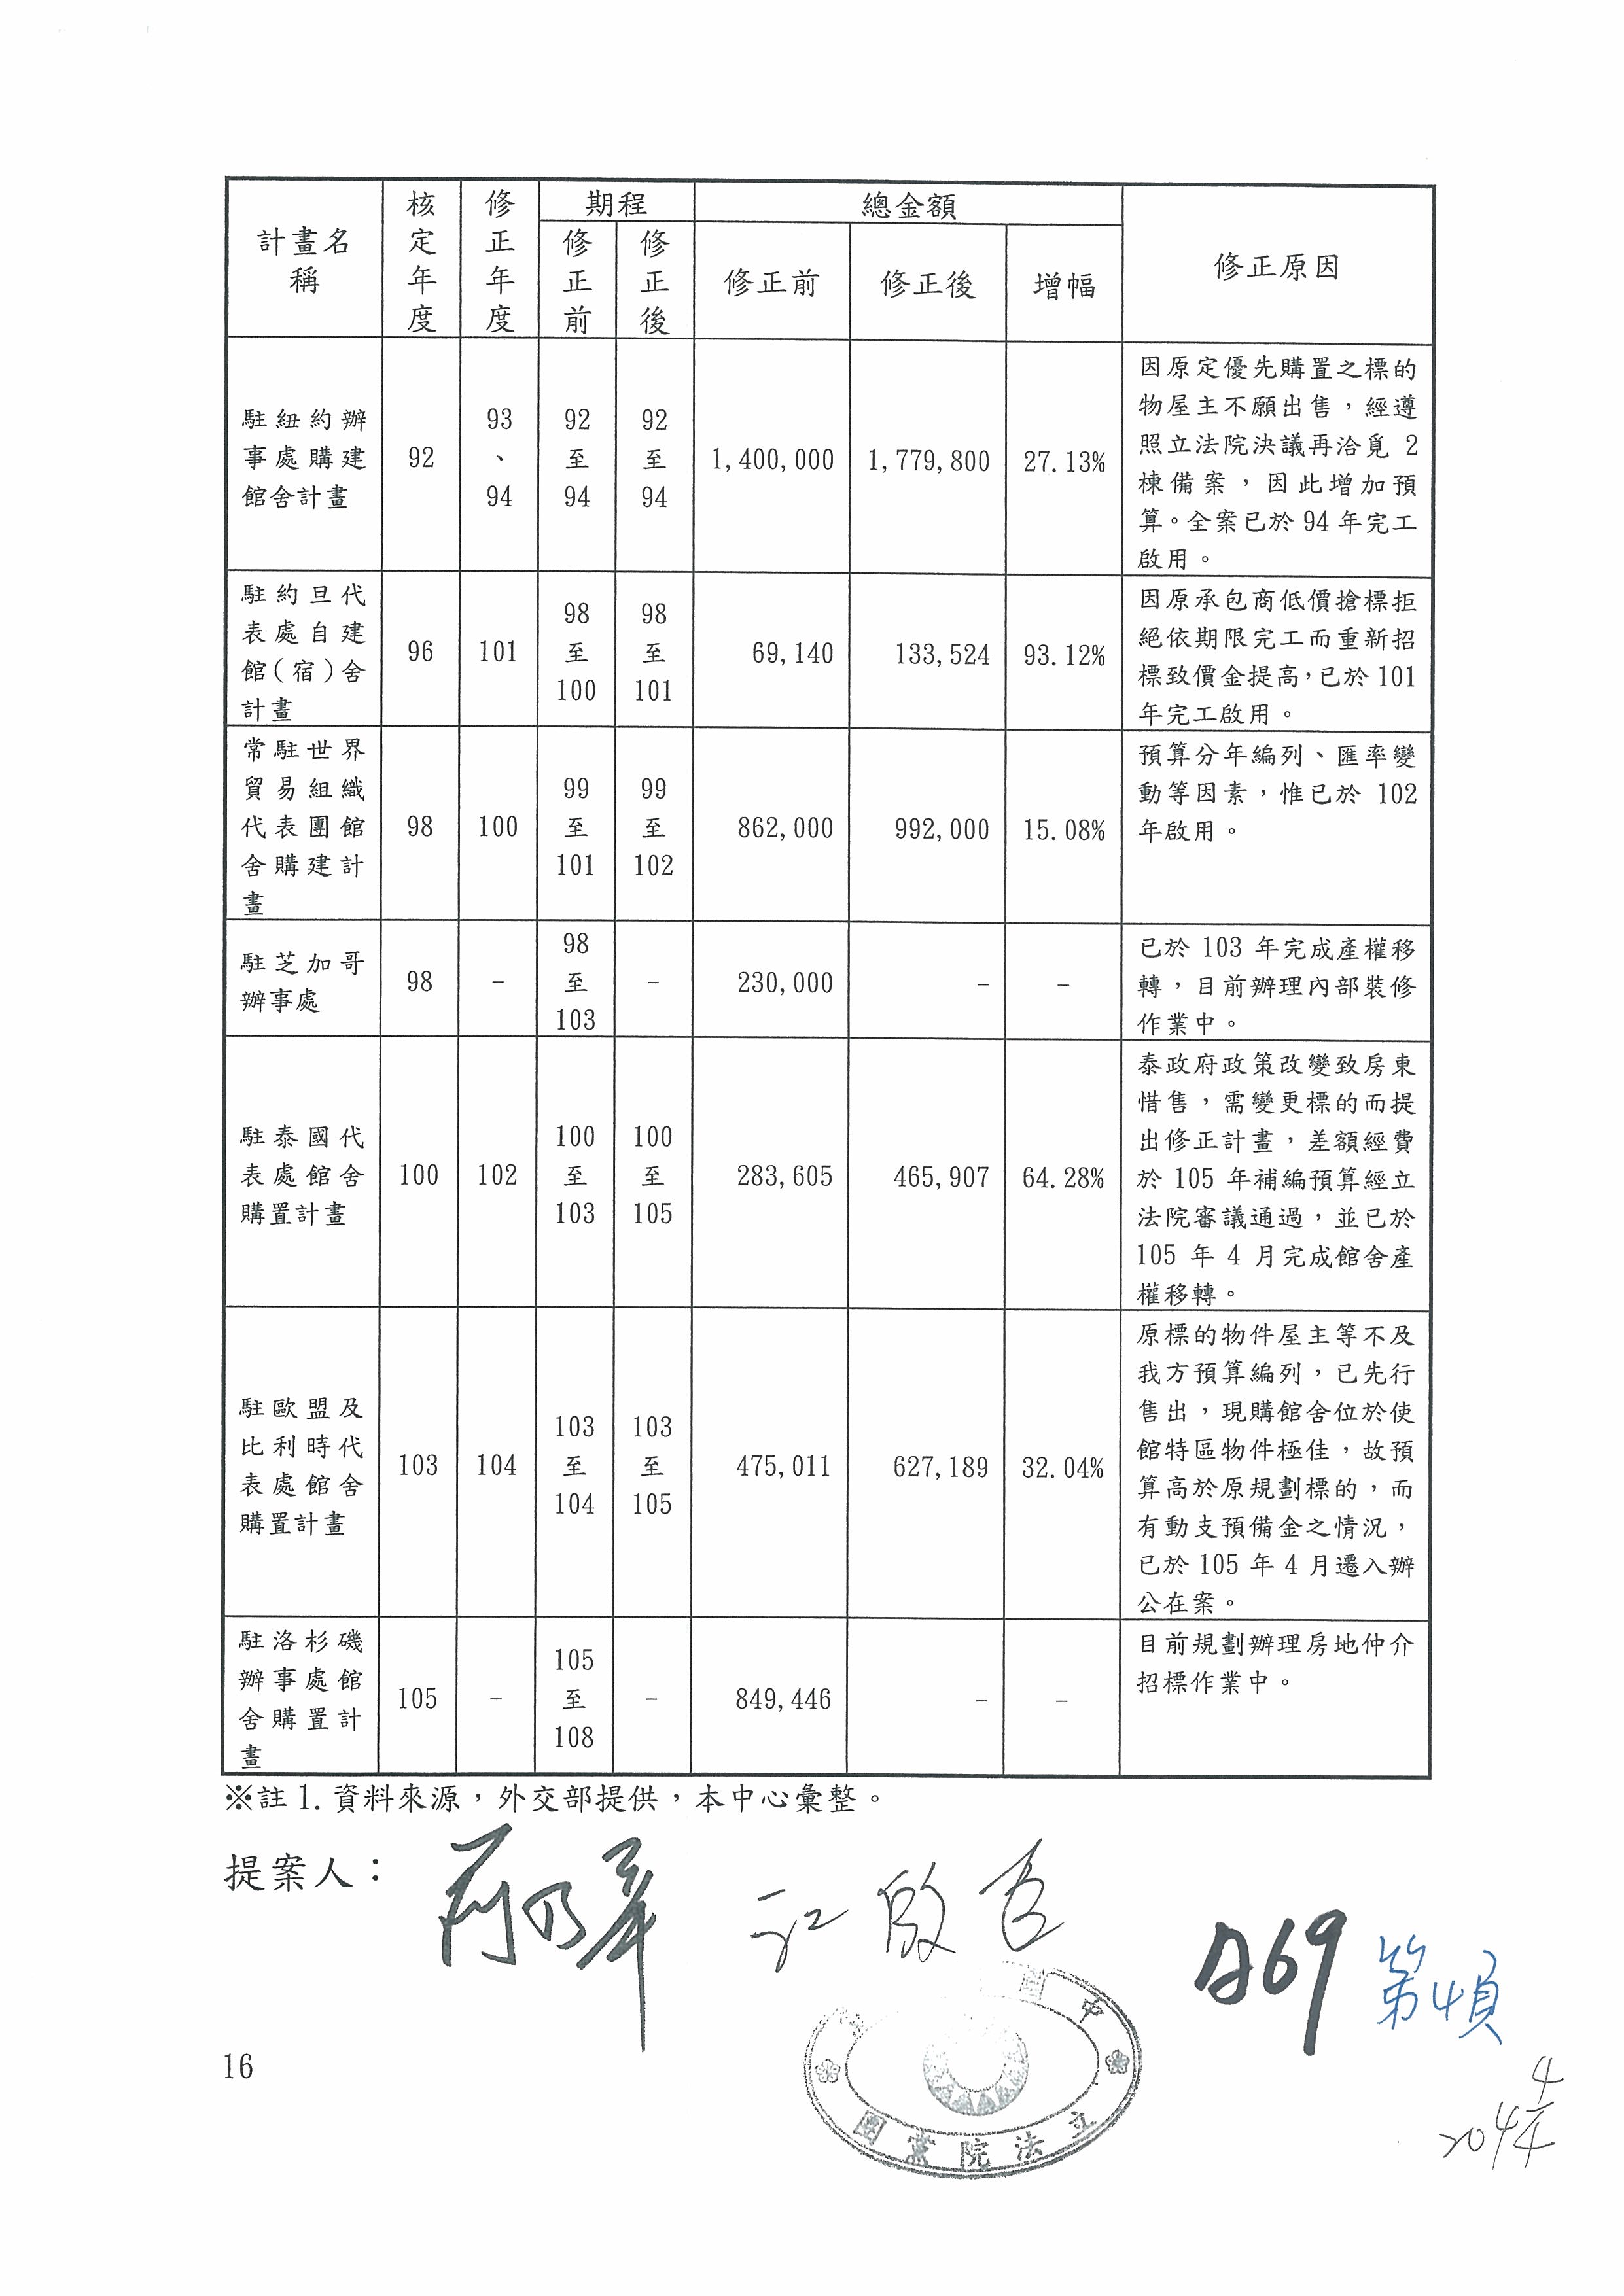 計畫名稱 核定年度 修正年度 期程 總金額 修正原因
修正前 修正後 修正前 修正後 增幅
駐紐約辦事處購建館舍計畫 92 93、94 92至94 92至94 1,400,000 1,779,800 27.13%
因原定優先購置之標的
物屋主不願出售，經遵
照立法院決議再洽覓 2
棟備案，因此增加預
算。全案已於 94 年完工
啟用。
駐約旦代表處自建館(宿)舍計畫 96 101 98至100 98至101 69,140 133,524 93.12%
因原承包商低價搶標拒
絕依期限完工而重新招
標致價金提高，已於 101
年完工啟用。
常駐世界貿易組織代表團館舍購建計畫 98 100 99至101 99至102 862,000 992,000 15.08%
預算分年編列、匯率變
動等因素，惟已於 102
年啟用。
駐芝加哥辦事處 98 - 98至103 - 230,000 - -
已於 103 年完成產權移
轉，目前辦理內部裝修
作業中。
駐泰國代表處館舍購置計畫 100 102 100至103 100至105 283,605 465,907 64.28%
泰政府政策改變致房東
惜售，需變更標的而提
出修正計畫，差額經費
於 105 年補編預算經立
法院審議通過，並已於
105 年 4 月完成館舍產
權移轉。
駐歐盟及比利時代表處館舍購置計畫 103 104 103至104 103至105 475,011 627,189 32.04%
原標的物件屋主等不及
我方預算編列，已先行
售出，現購館舍位於使
館特區物件極佳，故預
算高於原規劃標的，而
有動支預備金之情況，
已於 105 年 4 月遷入辦
公在案。
駐洛杉磯辦事處館舍購置計畫 105 - 105至108 - 849,446 - -
目前規劃辦理房地仲介
招標作業中。
※註 1. 資料來源，外交部提供，本中心彙整。
提案人：
江啟臣
A69 第4項
16
立法院黨團